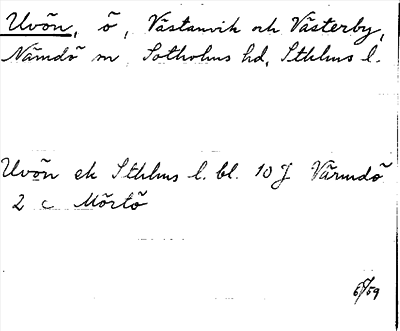 Uvön, ö, Västanvik och Västerby,
Nämdö sn, Sotholms hd, Sthlms l.
Uvön ek Sthlms l. bl. 10 J Värmdö
2 c Mörtö